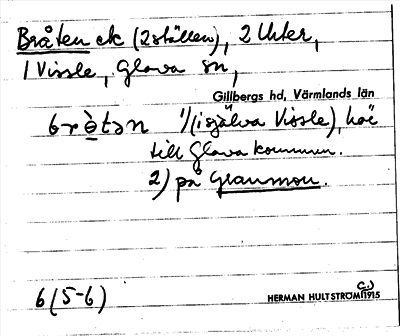 Bråten etc (2 ställen), 2 Uter,
1 Vissle, Glava sn,
Gillbergs hd, Värmlands län
brὲ̀tən 1/(i själva Vissle), hör
till Glava kommun.
2) på Granmon.
6 (5-6)
HERMAN HULTSTRÖM 1915